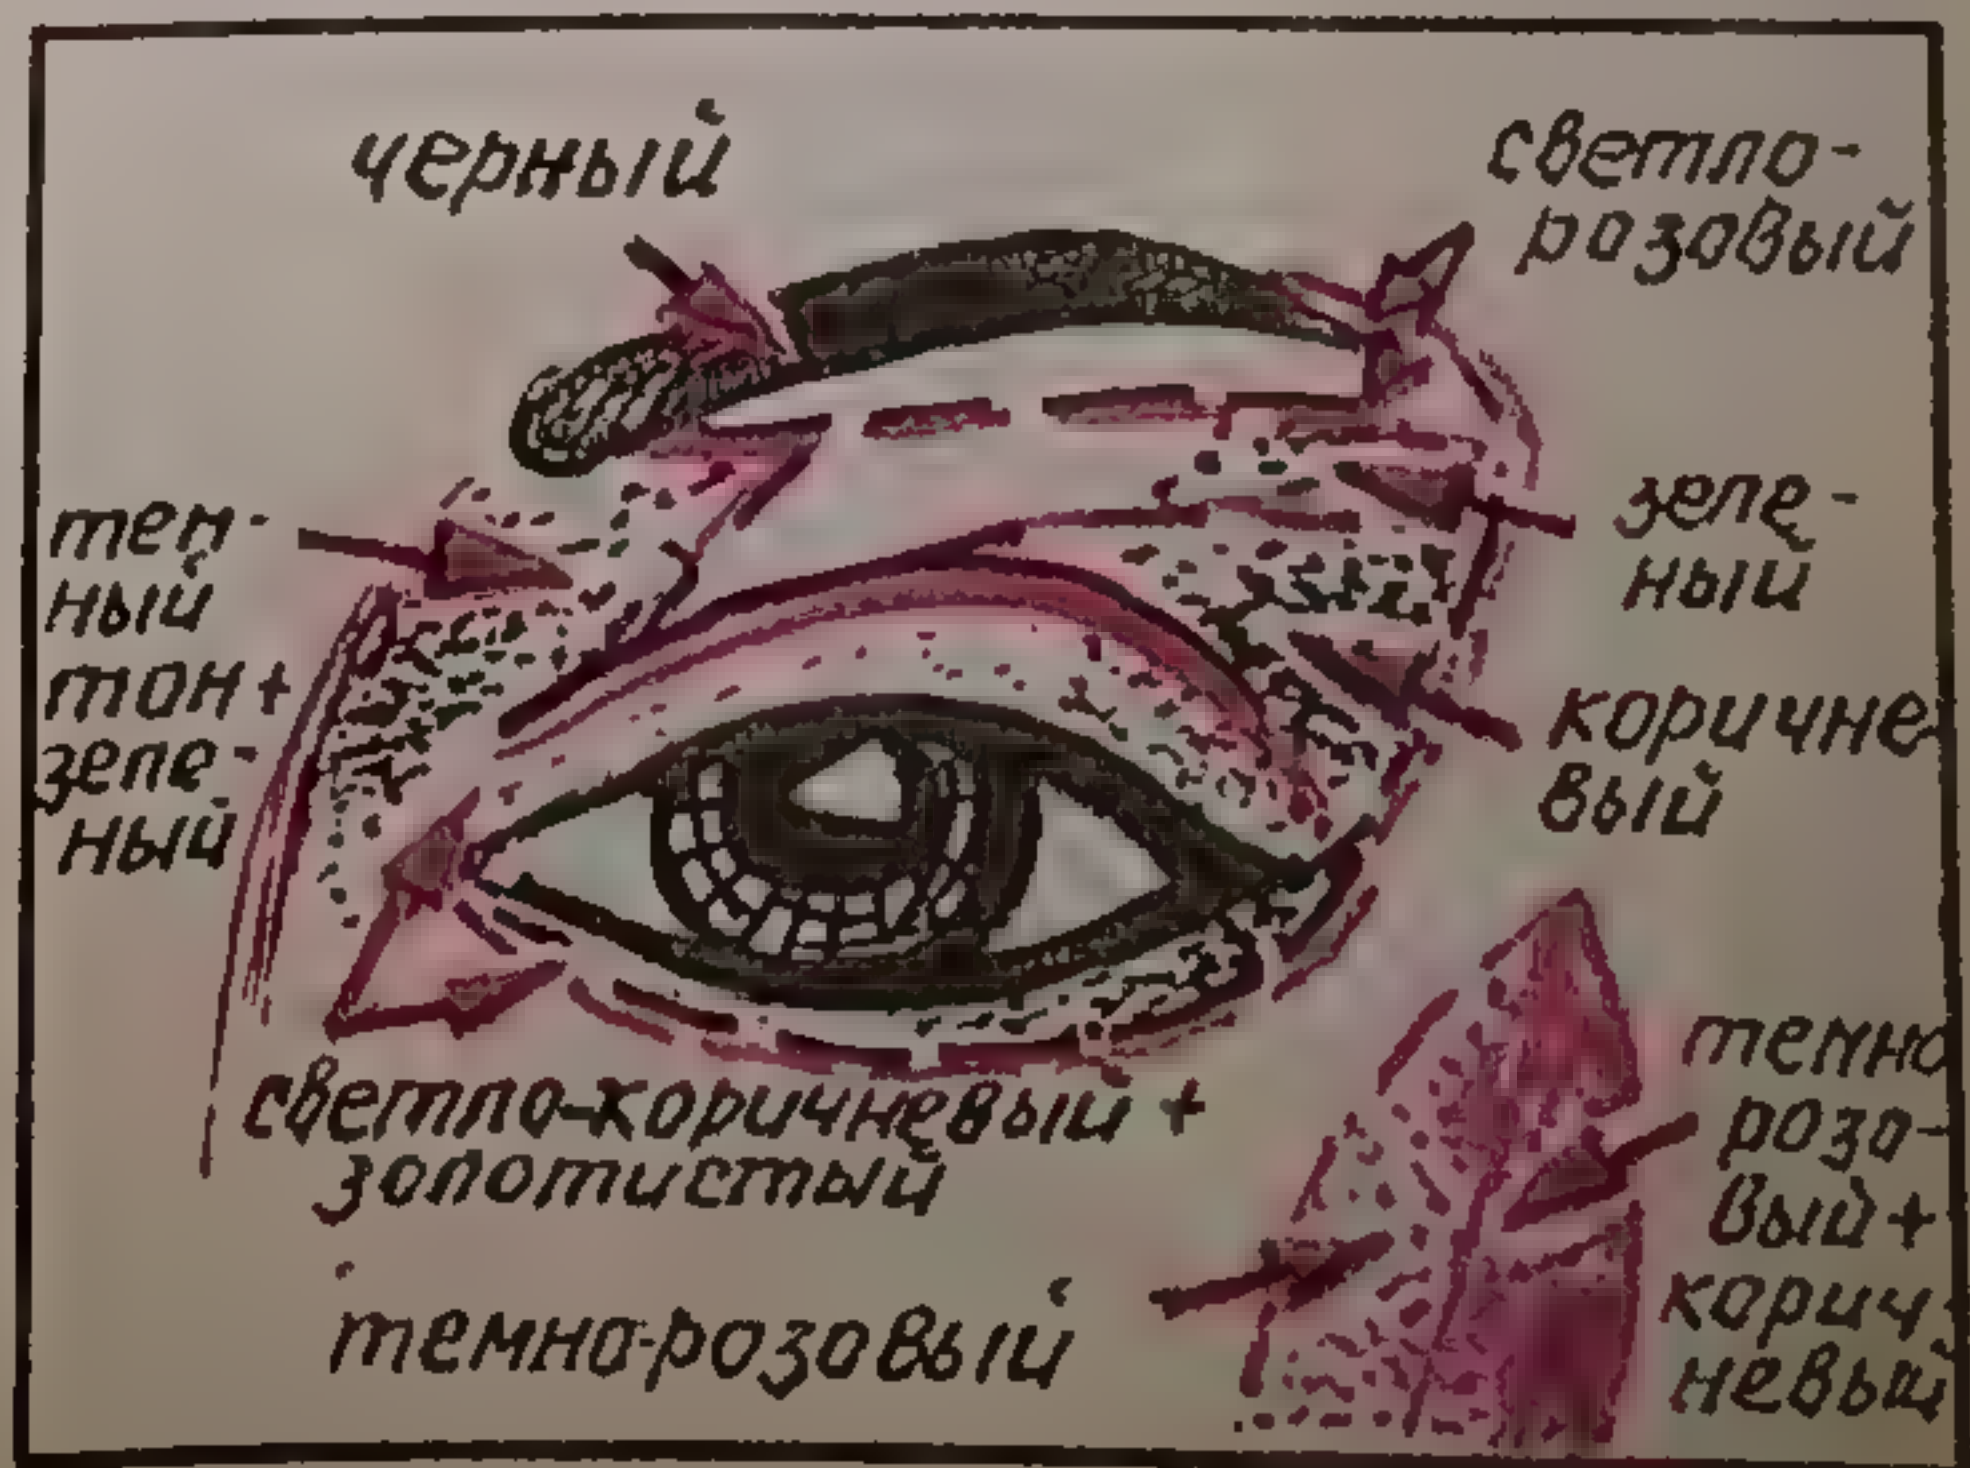 черный
светло-
розовый
тем-
ный
тон+
зеле-
ный
зеле-
ный
коричне-
вый
светло-коричневый +
золотистый
темно-розовый
темно
розо-
вый+
корич-
невый